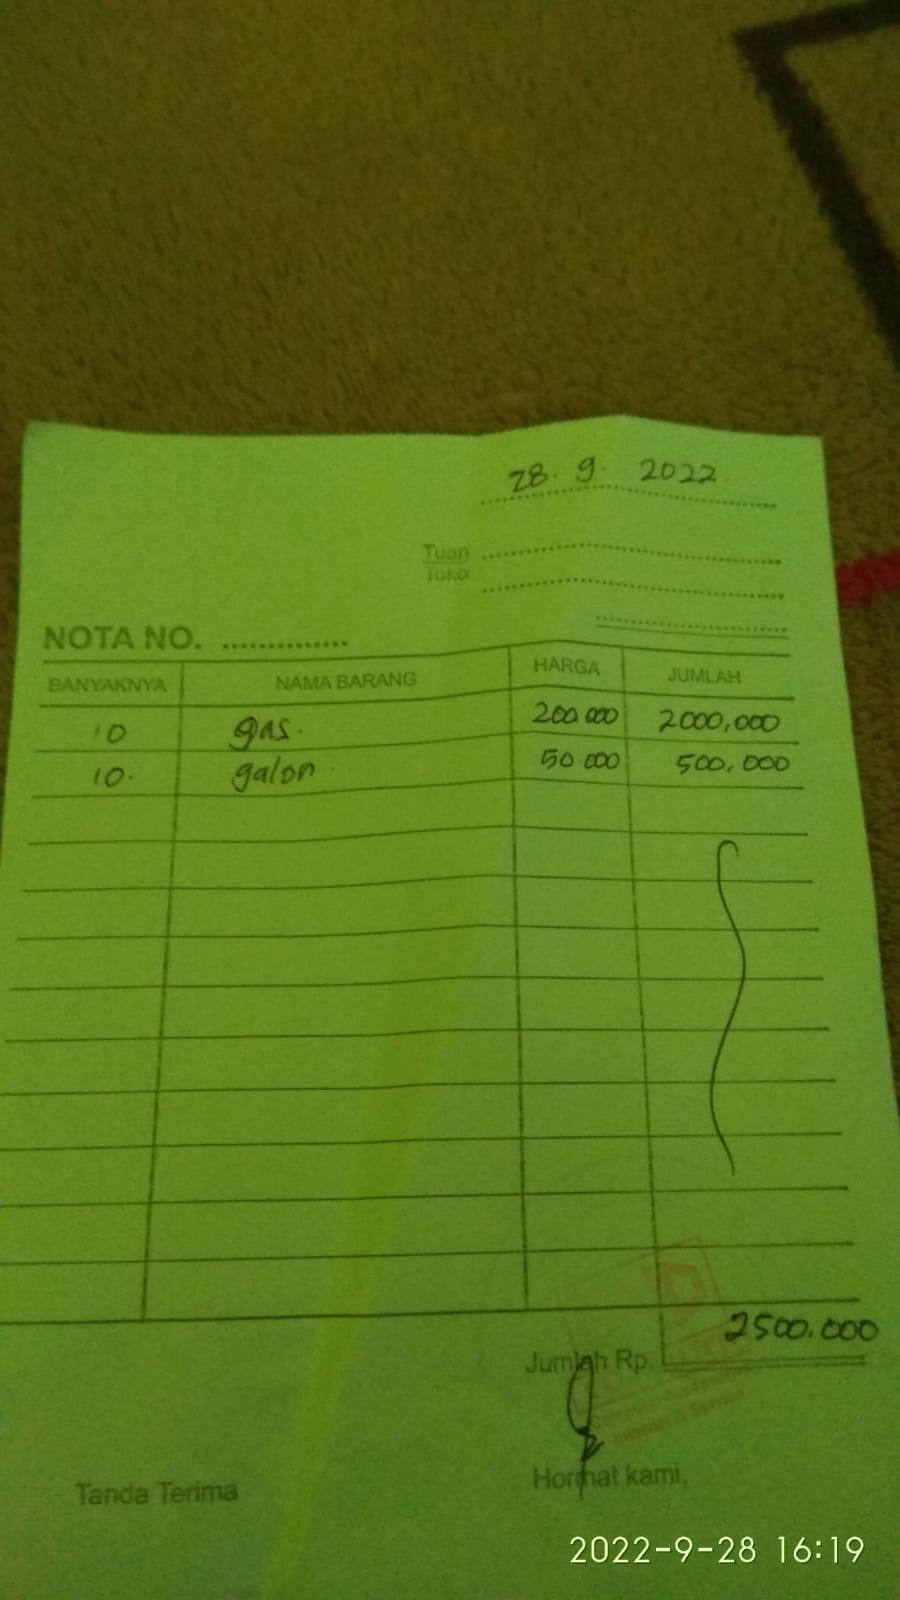 28. 9. 2022
Tuan
Toko
NOTA NO. ..............
BANYAKNYA NAMA BARANG HARGA JUMLAH
10 gas. 200 000 2000,000
10. galon. 50 000 500,000
2500.000
Jumlah Rp.
Tanda Terima Hormat kami,
2022-9-28 16:19